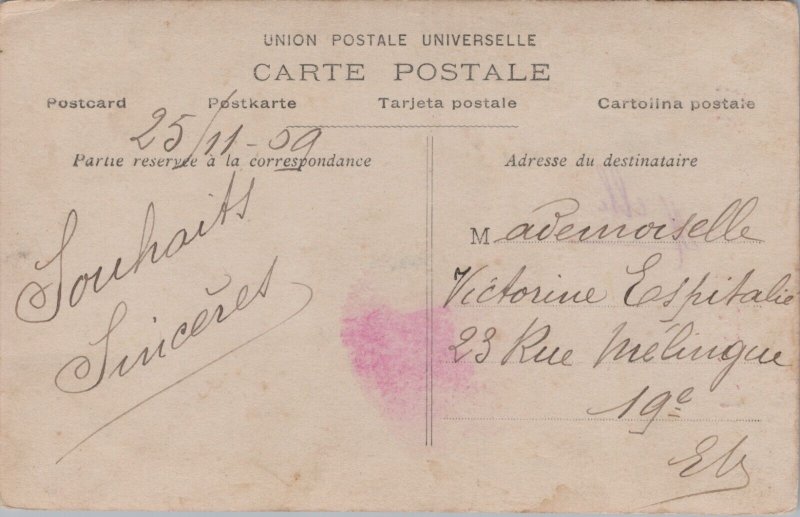 UNION POSTALE UNIVERSELLE
CARTE POSTALE
Postcard Postkarte Tarjeta postale Cartolina postale
25/11-09
Partie reservée à la correspondance
Souhaits
Sincères
Adresse du destinataire
Mademoiselle
Victorine Espitalié
23 Rue Mélingue
19e